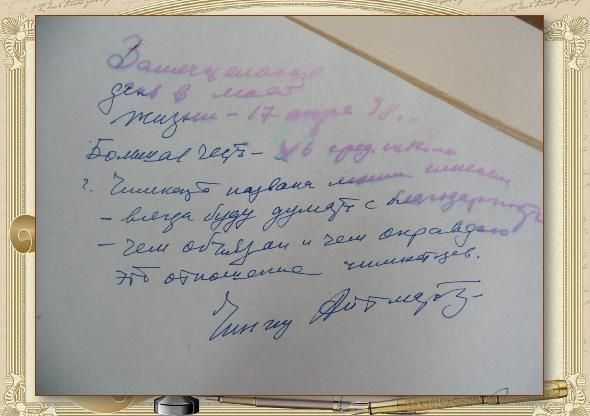 Замечательный
день в моей
жизни – 17 апре 98 г.
Большая честь – 46 сред. школа
г. Чимкента названа моим именем
– всегда буду думать с благодарностью
– чем обязан и чем оправдаю
это отношение чимкентцев.
Чингиз Айтматов